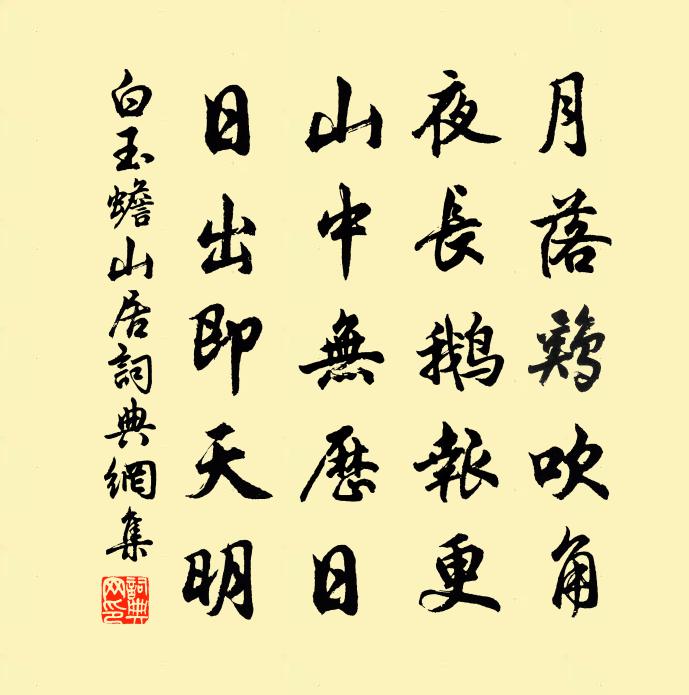 月落鷄吹角
夜長鵝報更
山中無歷日
日出即天明
白玉蟾山居詞典網集
詞典
网印